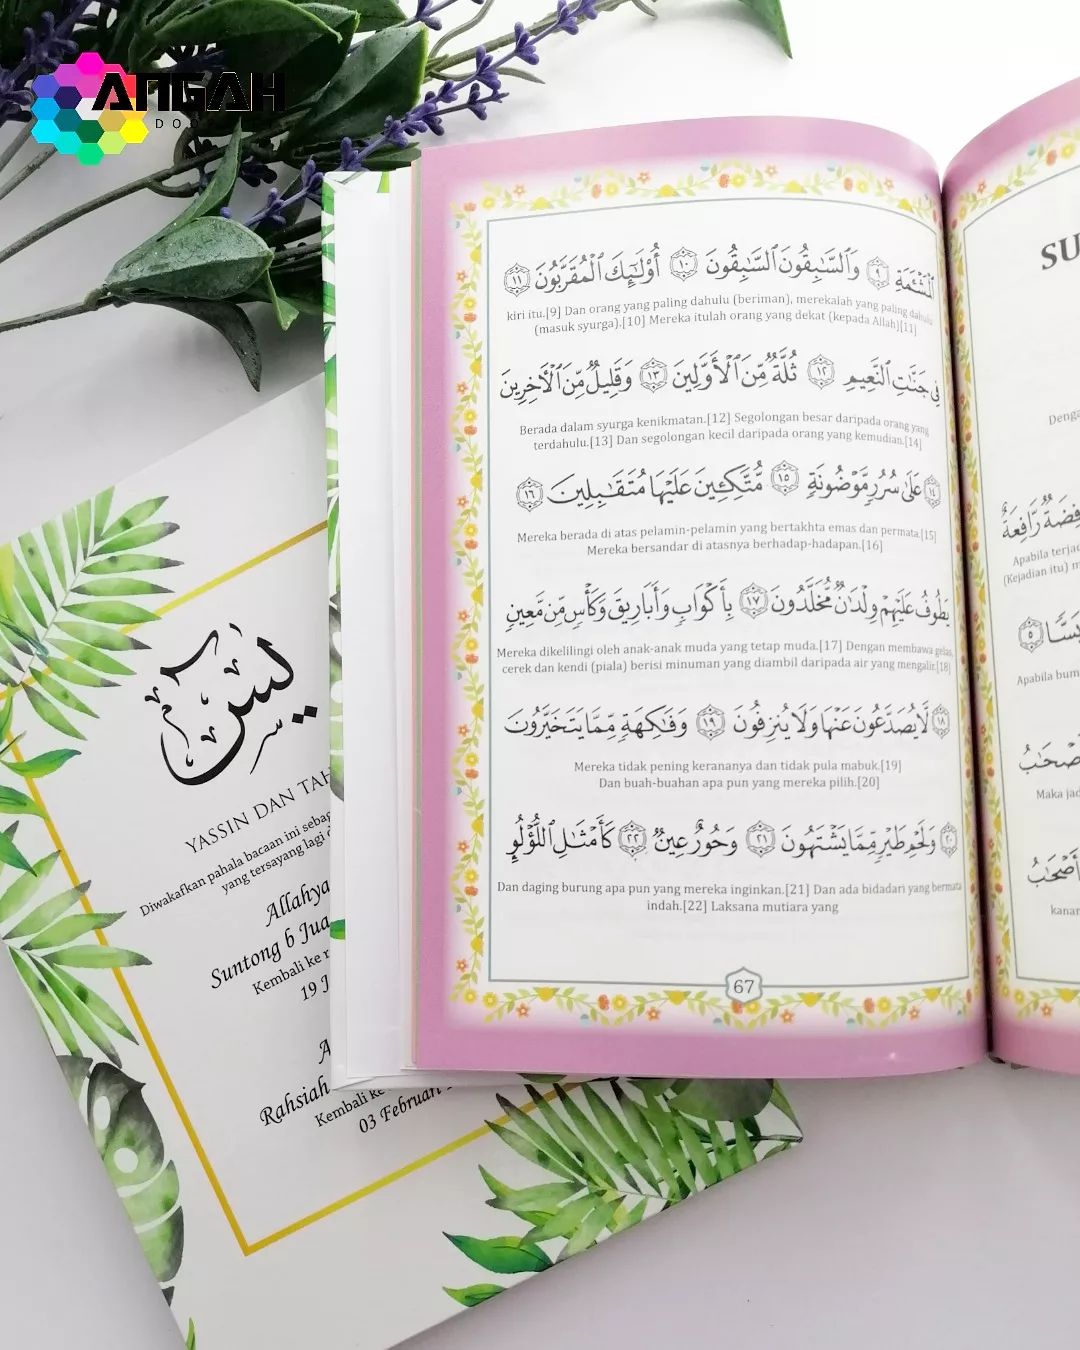 ANGAH
لْمَشْـَٔمَةِ ٩ وَٱلسَّٰبِقُونَ ٱلسَّٰبِقُونَ ١٠ أُو۟لَٰٓئِكَ ٱلْمُقَرَّبُونَ ١١
kiri itu.[9] Dan orang yang paling dahulu (beriman), merekalah yang paling dahulu
(masuk syurga).[10] Mereka itulah orang yang dekat (kepada Allah)[11]
فِى جَنَّٰتِ ٱلنَّعِيمِ ١٢ ثُلَّةٌ مِّنَ ٱلْأَوَّلِينَ ١٣ وَقَلِيلٌ مِّنَ ٱلْـَٔاخِرِينَ
Berada dalam syurga kenikmatan.[12] Segolongan besar daripada orang yang
terdahulu.[13] Dan segolongan kecil daripada orang yang kemudian.[14]
١٤ عَلَىٰ سُرُرٍ مَّوْضُونَةٍ ١٥ مُّتَّكِـِٔينَ عَلَيْهَا مُتَقَٰبِلِينَ ١٦
Mereka berada di atas pelamin-pelamin yang bertakhta emas dan permata.[15]
Mereka bersandar di atasnya berhadap-hadapan.[16]
يَطُوفُ عَلَيْهِمْ وِلْدَٰنٌ مُّخَلَّدُونَ ١٧ بِأَكْوَابٍ وَأَبَارِيقَ وَكَأْسٍ مِّن مَّعِينٍ
Mereka dikelilingi oleh anak-anak muda yang tetap muda.[17] Dengan membawa gelas,
cerek dan kendi (piala) berisi minuman yang diambil daripada air yang mengalir.[18]
١٨ لَّا يُصَدَّعُونَ عَنْهَا وَلَا يُنزِفُونَ ١٩ وَفَٰكِهَةٍ مِّمَّا يَتَخَيَّرُونَ
Mereka tidak pening kerananya dan tidak pula mabuk.[19]
Dan buah-buahan apa pun yang mereka pilih.[20]
٢٠ وَلَحْمِ طَيْرٍ مِّمَّا يَشْتَهُونَ ٢١ وَحُورٌ عِينٌ ٢٢ كَأَمْثَٰلِ ٱللُّؤْلُؤِ
Dan daging burung apa pun yang mereka inginkan.[21] Dan ada bidadari yang bermata
indah.[22] Laksana mutiara yang
67
SU
رَّافِعَةٌ
Apabila
(Kejadian itu)
٥
Apabila
Maka
kanan
يس
YASSIN DAN
Diwakafkan pahala bacaan ini
yang tersayang lagi
Suntong b
Kembali ke
19
Rahsiah
Kembali ke
03 Februari